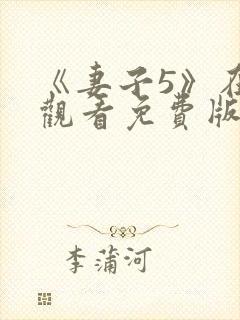 《妻子5》在
觀看免費版
李蒲河